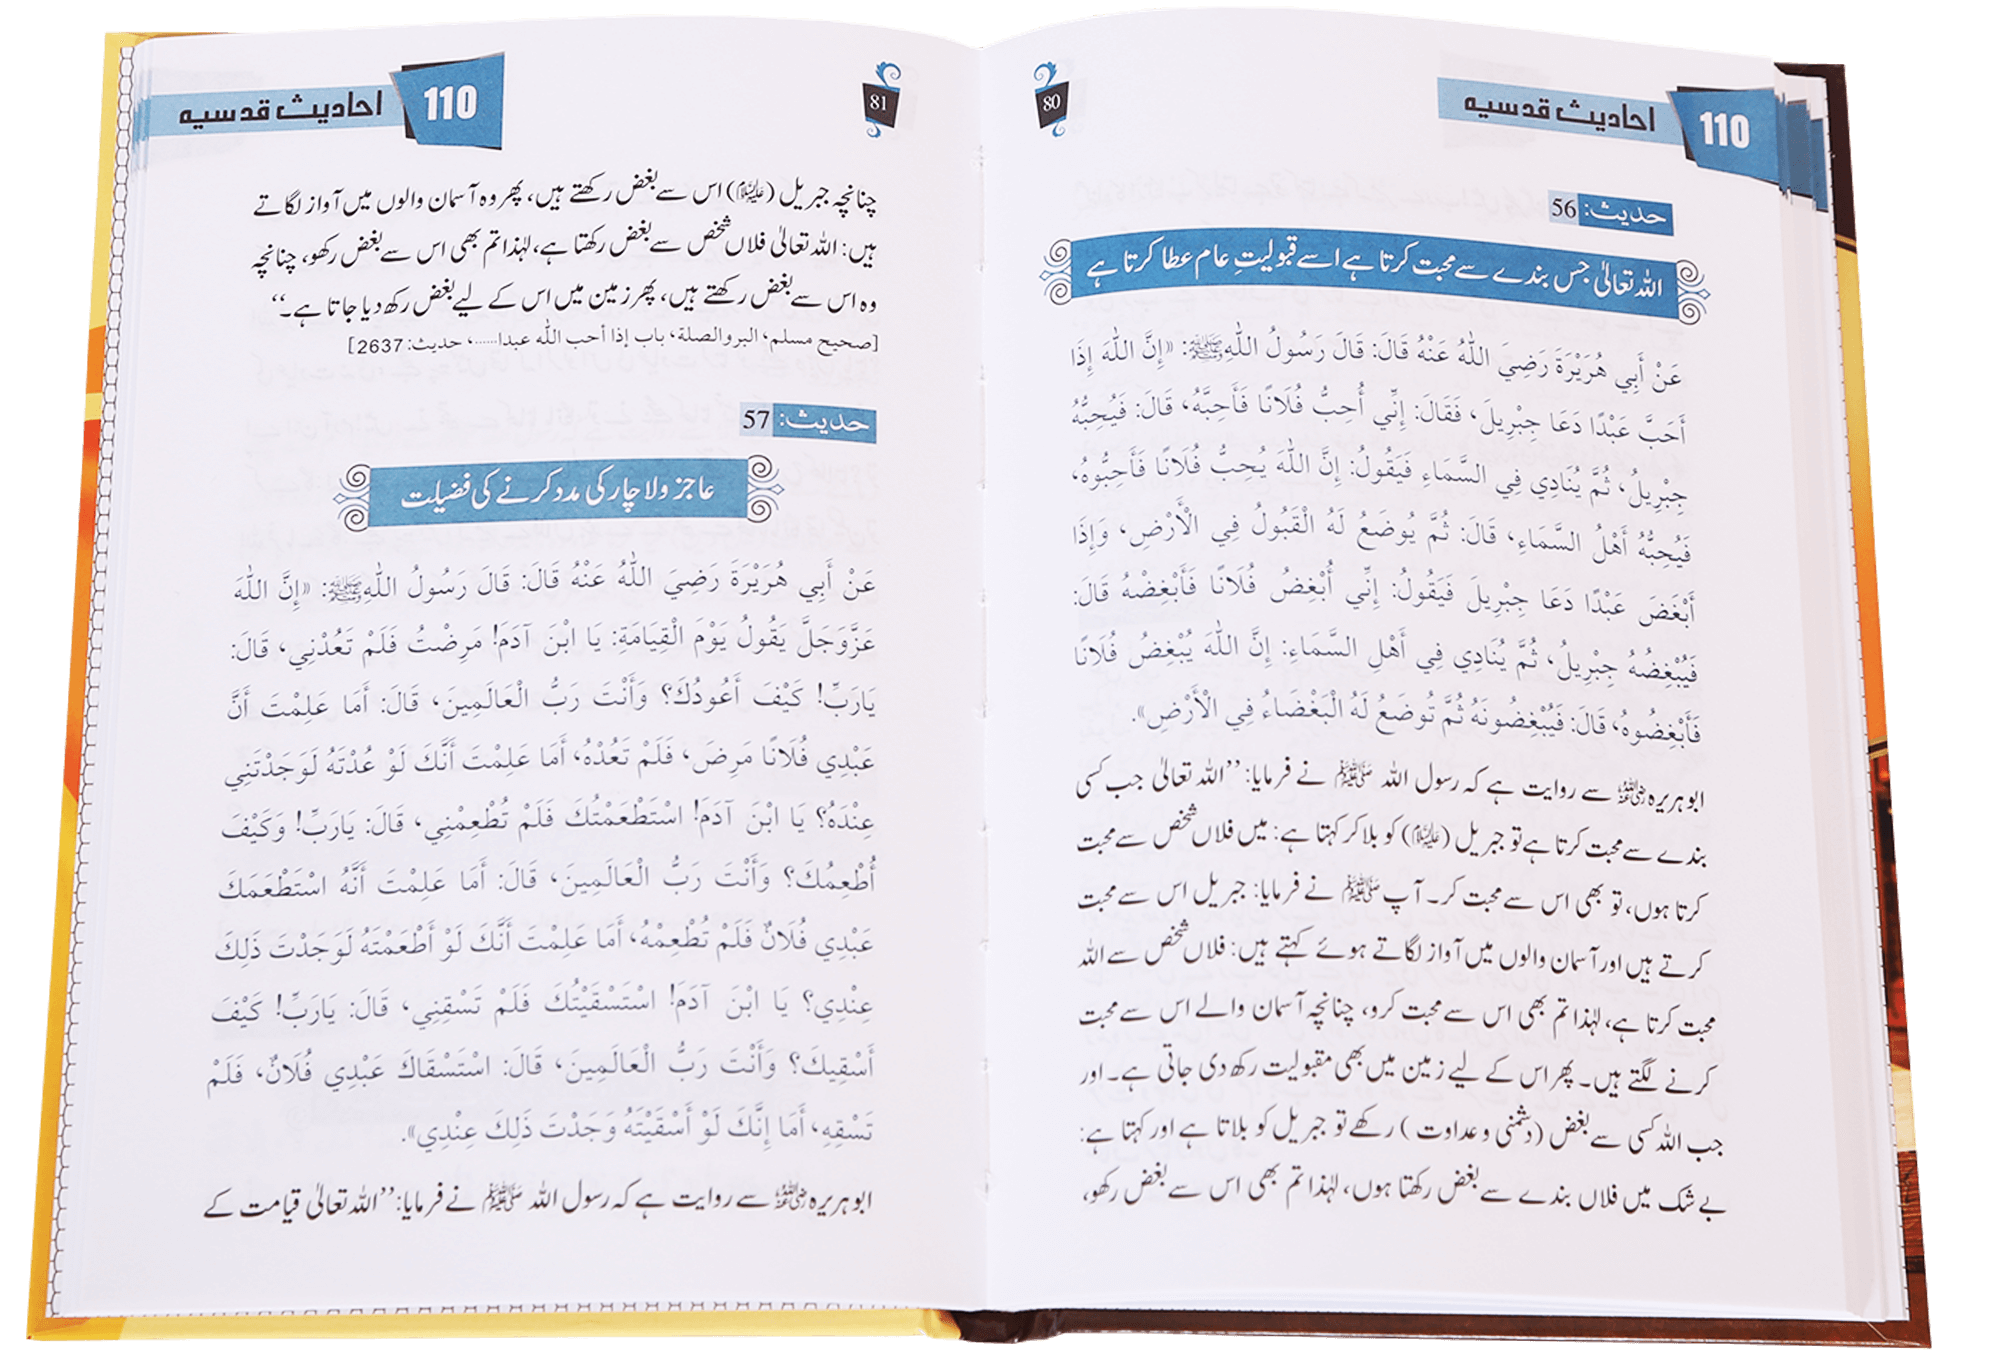 110 احادیث قدسیہ
80
حدیث: 56
اللہ تعالیٰ جس بندے سے محبت کرتا ہے اسے قبولیتِ عام عطا کرتا ہے
عَنْ أَبِي هُرَيْرَةَ رَضِيَ اللّٰهُ عَنْهُ قَالَ: قَالَ رَسُولُ اللّٰهِ ﷺ: «إِنَّ اللّٰهَ إِذَا
أَحَبَّ عَبْدًا دَعَا جِبْرِيلَ، فَقَالَ: إِنِّي أُحِبُّ فُلَانًا فَأَحِبَّهُ، قَالَ: فَيُحِبُّهُ
جِبْرِيلُ، ثُمَّ يُنَادِي فِي السَّمَاءِ فَيَقُولُ: إِنَّ اللّٰهَ يُحِبُّ فُلَانًا فَأَحِبُّوهُ،
فَيُحِبُّهُ أَهْلُ السَّمَاءِ، قَالَ: ثُمَّ يُوضَعُ لَهُ الْقَبُولُ فِي الْأَرْضِ، وَإِذَا
أَبْغَضَ عَبْدًا دَعَا جِبْرِيلَ فَيَقُولُ: إِنِّي أُبْغِضُ فُلَانًا فَأَبْغِضْهُ قَالَ:
فَيُبْغِضُهُ جِبْرِيلُ، ثُمَّ يُنَادِي فِي أَهْلِ السَّمَاءِ: إِنَّ اللّٰهَ يُبْغِضُ فُلَانًا
فَأَبْغِضُوهُ، قَالَ: فَيُبْغِضُونَهُ ثُمَّ تُوضَعُ لَهُ الْبَغْضَاءُ فِي الْأَرْضِ».
ابوہریرہ رضی اللہ عنہ سے روایت ہے کہ رسول اللہ ﷺ نے فرمایا: ’’اللہ تعالیٰ جب کسی
بندے سے محبت کرتا ہے تو جبریل (علیہ السلام) کو بلا کر کہتا ہے: میں فلاں شخص سے محبت
کرتا ہوں، تو بھی اس سے محبت کر۔ آپ ﷺ نے فرمایا: جبریل اس سے محبت
کرتے ہیں اور آسمان والوں میں آواز لگاتے ہوئے کہتے ہیں: فلاں شخص سے اللہ
محبت کرتا ہے، لہٰذا تم بھی اس سے محبت کرو، چنانچہ آسمان والے اس سے محبت
کرنے لگتے ہیں۔ پھر اس کے لیے زمین میں بھی مقبولیت رکھ دی جاتی ہے۔ اور
جب اللہ کسی سے بغض (دشمنی و عداوت) رکھے تو جبریل کو بلاتا ہے اور کہتا ہے:
بے شک میں فلاں بندے سے بغض رکھتا ہوں، لہٰذا تم بھی اس سے بغض رکھو،
110 احادیث قدسیہ
81
چنانچہ جبریل (علیہ السلام) اس سے بغض رکھتے ہیں، پھر وہ آسمان والوں میں آواز لگاتے
ہیں: اللہ تعالیٰ فلاں شخص سے بغض رکھتا ہے، لہٰذا تم بھی اس سے بغض رکھو، چنانچہ
وہ اس سے بغض رکھتے ہیں، پھر زمین میں اس کے لیے بغض رکھ دیا جاتا ہے۔‘‘
[صحیح مسلم، البر والصلة، باب إذا أحب اللّٰه عبدا......، حدیث: 2637]
حدیث: 57
عاجز ولاچار کی مدد کرنے کی فضیلت
عَنْ أَبِي هُرَيْرَةَ رَضِيَ اللّٰهُ عَنْهُ قَالَ: قَالَ رَسُولُ اللّٰهِ ﷺ: «إِنَّ اللّٰهَ
عَزَّوَجَلَّ يَقُولُ يَوْمَ الْقِيَامَةِ: يَا ابْنَ آدَمَ! مَرِضْتُ فَلَمْ تَعُدْنِي، قَالَ:
يَارَبِّ! كَيْفَ أَعُودُكَ؟ وَأَنْتَ رَبُّ الْعَالَمِينَ، قَالَ: أَمَا عَلِمْتَ أَنَّ
عَبْدِي فُلَانًا مَرِضَ، فَلَمْ تَعُدْهُ، أَمَا عَلِمْتَ أَنَّكَ لَوْ عُدْتَهُ لَوَجَدْتَنِي
عِنْدَهُ؟ يَا ابْنَ آدَمَ! اسْتَطْعَمْتُكَ فَلَمْ تُطْعِمْنِي، قَالَ: يَارَبِّ! وَكَيْفَ
أُطْعِمُكَ؟ وَأَنْتَ رَبُّ الْعَالَمِينَ، قَالَ: أَمَا عَلِمْتَ أَنَّهُ اسْتَطْعَمَكَ
عَبْدِي فُلَانٌ فَلَمْ تُطْعِمْهُ، أَمَا عَلِمْتَ أَنَّكَ لَوْ أَطْعَمْتَهُ لَوَجَدْتَ ذَلِكَ
عِنْدِي؟ يَا ابْنَ آدَمَ! اسْتَسْقَيْتُكَ فَلَمْ تَسْقِنِي، قَالَ: يَارَبِّ! كَيْفَ
أَسْقِيكَ؟ وَأَنْتَ رَبُّ الْعَالَمِينَ، قَالَ: اسْتَسْقَاكَ عَبْدِي فُلَانٌ، فَلَمْ
تَسْقِهِ، أَمَا إِنَّكَ لَوْ أَسْقَيْتَهُ وَجَدْتَ ذَلِكَ عِنْدِي».
ابوہریرہ رضی اللہ عنہ سے روایت ہے کہ رسول اللہ ﷺ نے فرمایا: ’’اللہ تعالیٰ قیامت کے